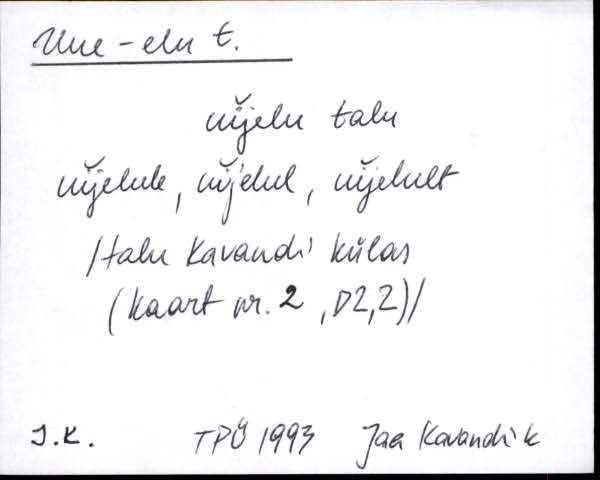 Uue-elu t.
uïjelu talu
uïjelule, uïjelul, uïjelult
/talu Kavandi külas
(kaart nr. 2, D2,2)/
J.K. TPÜ 1993 Jaa Kavandi k